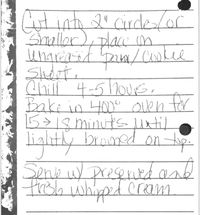 Cut into 2" circles (or
smaller), place on
ungreased pan/cookie
sheet.
Chill 4-5 hours.
Bake in 400° oven for
15→18 minutes until
lightly browned on top.
Serve w/ preserves and
fresh whipped cream.